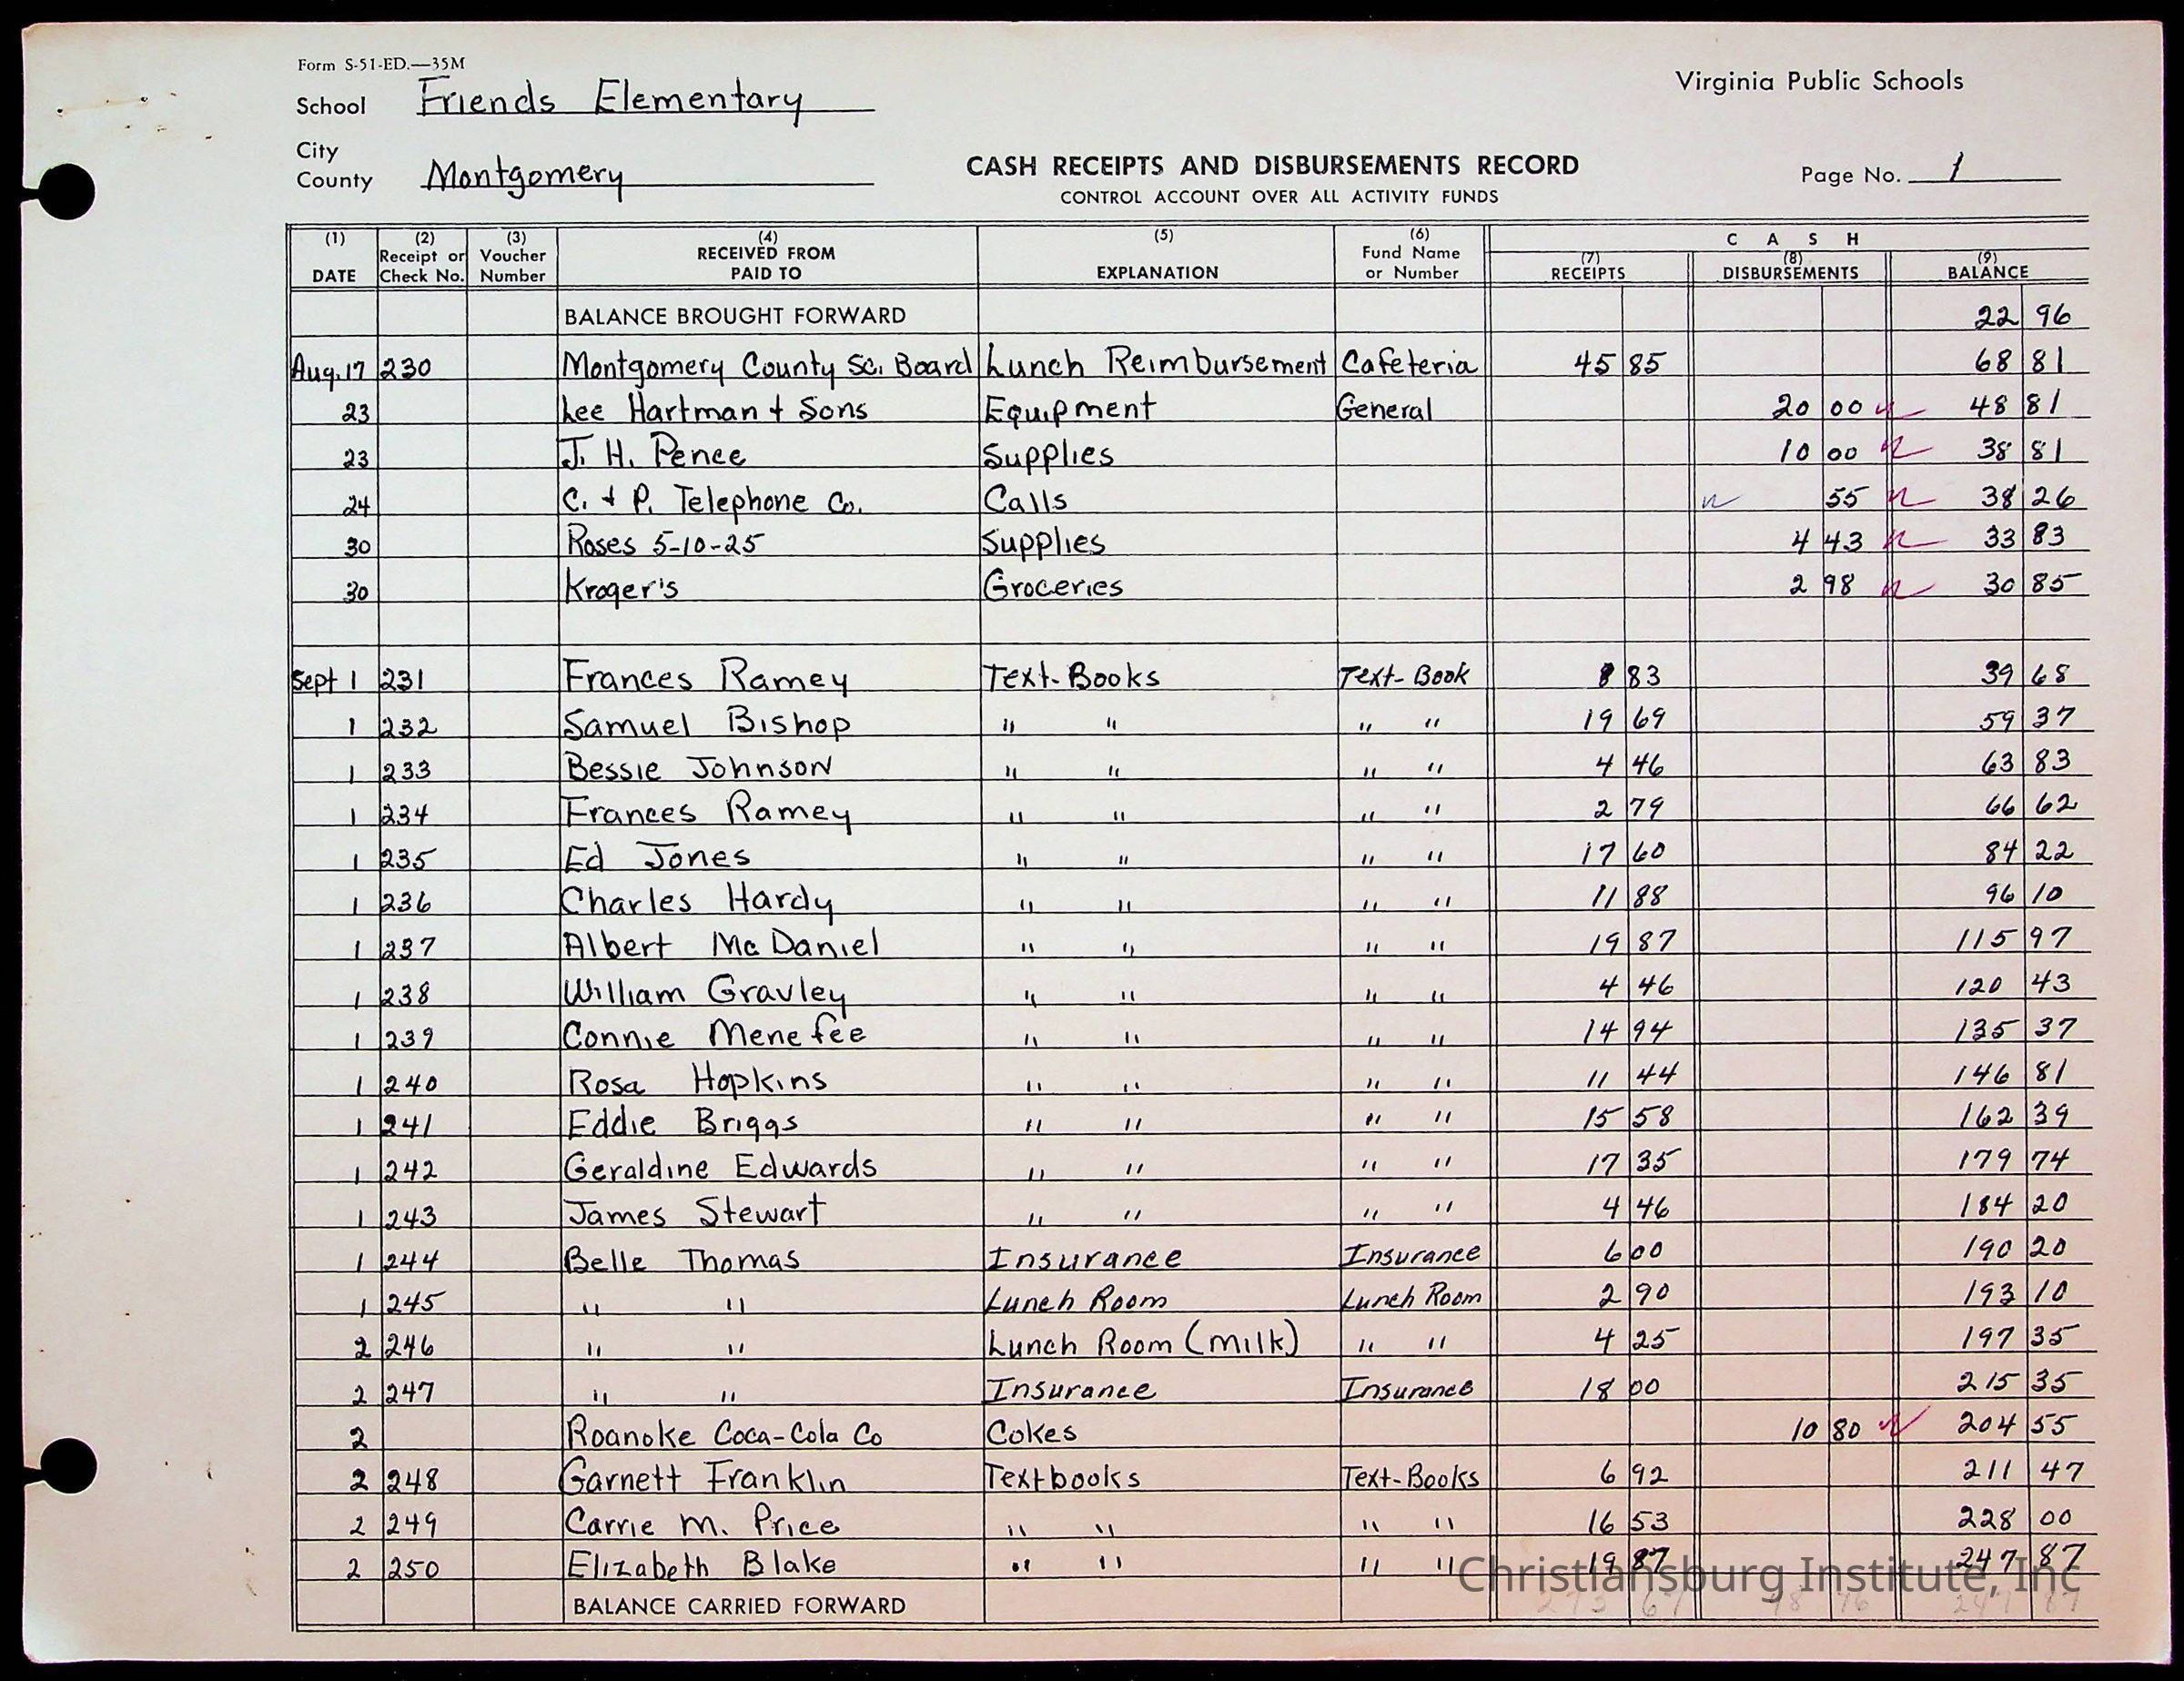 Form S-51-ED.—35M
School Friends Elementary
Virginia Public Schools
City
County Montgomery
CASH RECEIPTS AND DISBURSEMENTS RECORD
CONTROL ACCOUNT OVER ALL ACTIVITY FUNDS
Page No. 1
(1) DATE (2) Receipt or Check No. (3) Voucher Number (4) RECEIVED FROM PAID TO (5) EXPLANATION (6) Fund Name or Number CASH (7) RECEIPTS (8) DISBURSEMENTS (9) BALANCE
BALANCE BROUGHT FORWARD 22 96
Aug. 17 230 Montgomery County Sc. Board Lunch Reimbursement Cafeteria 45 85 68 81
23 Lee Hartman + Sons Equipment General 20 00 48 81
23 J. H. Pence Supplies 10 00 38 81
24 C. + P. Telephone Co. Calls 55 38 26
30 Roses 5-10-25 Supplies 4 43 33 83
30 Kroger's Groceries 2 98 30 85
Sept 1 231 Frances Ramey Text-Books Text-Book 8 83 39 68
1 232 Samuel Bishop " " " " 19 69 59 37
1 233 Bessie Johnson " " " " 4 46 63 83
1 234 Frances Ramey " " " " 2 79 66 62
1 235 Ed Jones " " " " 17 60 84 22
1 236 Charles Hardy " " " " 11 88 96 10
1 237 Albert McDaniel " " " " 19 87 115 97
1 238 William Gravley " " " " 4 46 120 43
1 239 Connie Menefee " " " " 14 94 135 37
1 240 Rosa Hopkins " " " " 11 44 146 81
1 241 Eddie Briggs " " " " 15 58 162 39
1 242 Geraldine Edwards " " " " 17 35 179 74
1 243 James Stewart " " " " 4 46 184 20
1 244 Belle Thomas Insurance Insurance 6 00 190 20
1 245 " " Lunch Room Lunch Room 2 90 193 10
2 246 " " Lunch Room (Milk) " " 4 25 197 35
2 247 " " Insurance Insurance 18 00 215 35
2 Roanoke Coca-Cola Co Cokes 10 80 204 55
2 248 Garnett Franklin Textbooks Text-Books 6 92 211 47
2 249 Carrie M. Price " " " " 16 53 228 00
2 250 Elizabeth Blake " " " " 19 87 247 87
Christiansburg Institute, Inc
BALANCE CARRIED FORWARD 273 67 48 76 247 87